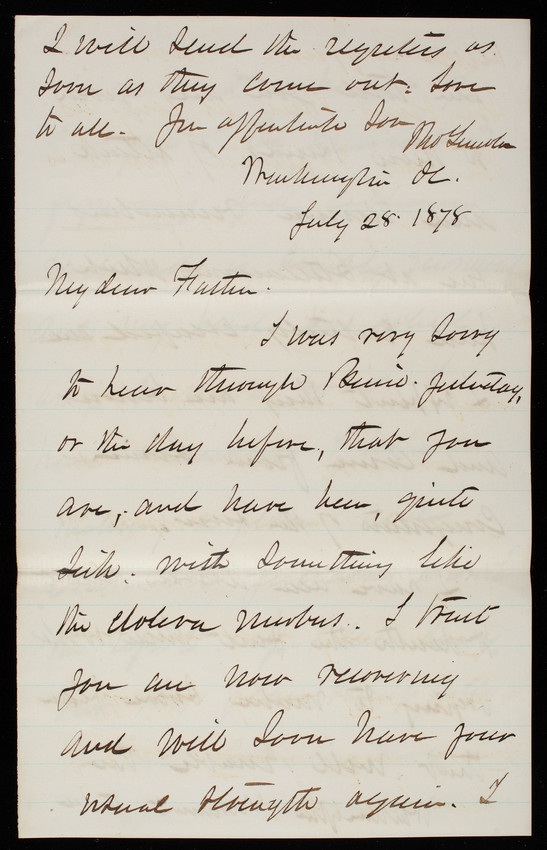 I will send the registers as
soon as they come out. Love
to all. Yr affectionate Son
Thos Lincoln
Washington DC.
July 28. 1878
My dear Father.
I was very sorry
to hear through Bernie. yesterday,
or the day before, that you
are, and have been, quite
sick. with something like
the cholera morbus. I trust
you are now recovering
and will soon have your
usual strength again. I